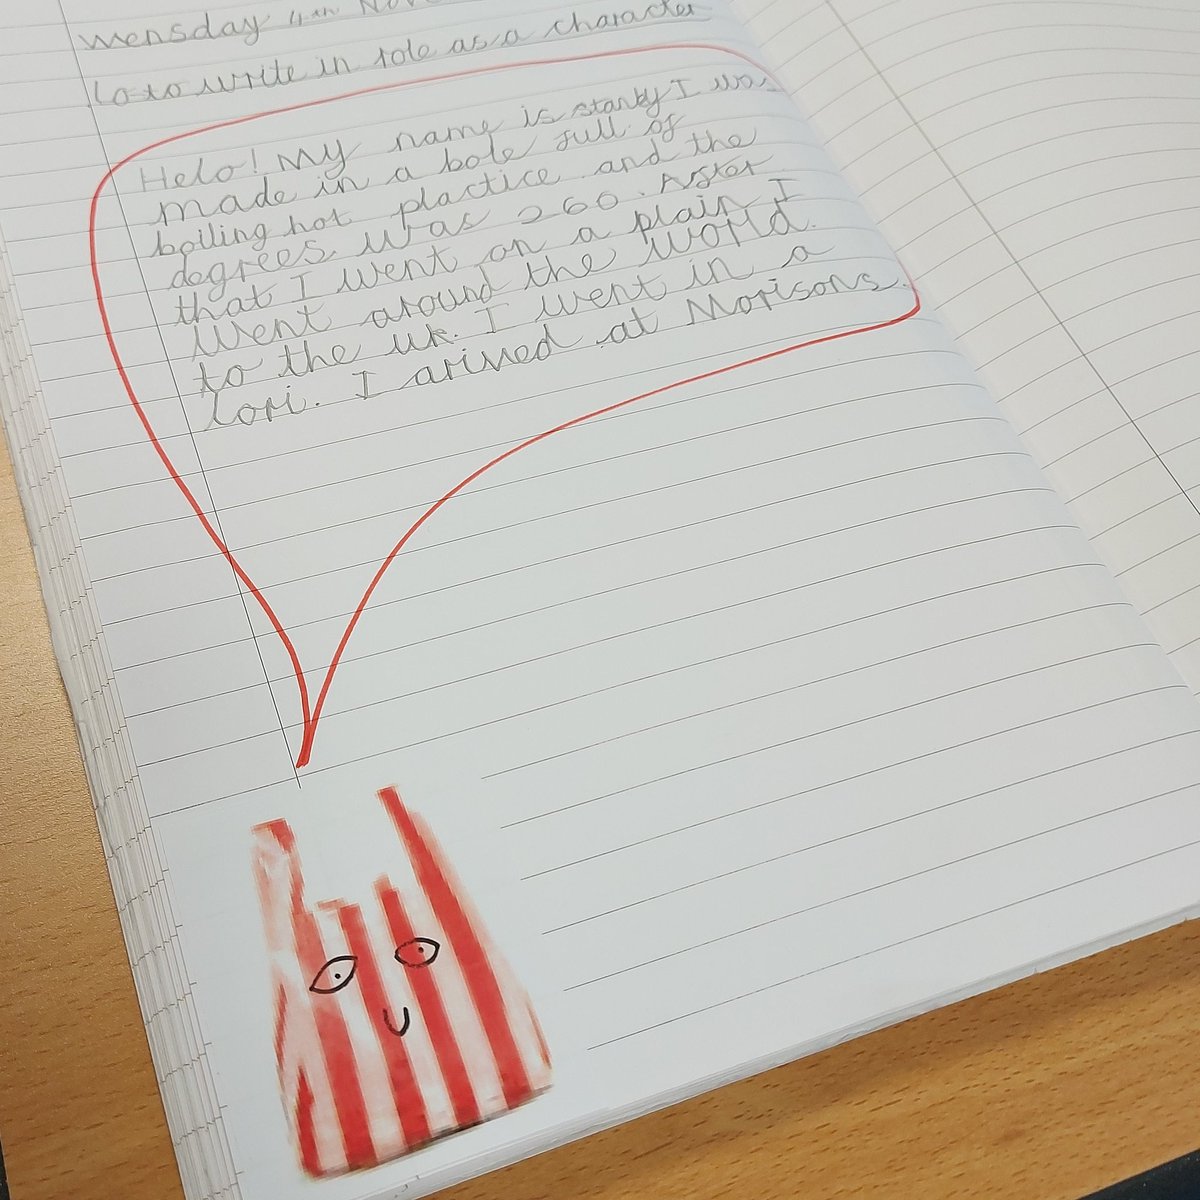 wensday 4th Nov
Lo to write in role as a character
Helo! My name is stanky I was
made in a bole full of
boiling hot plactice and the
degrees was 260. After
that I went on a plain I
went around the world.
to the uk. I went in a
Lori. I arived at Morisons.